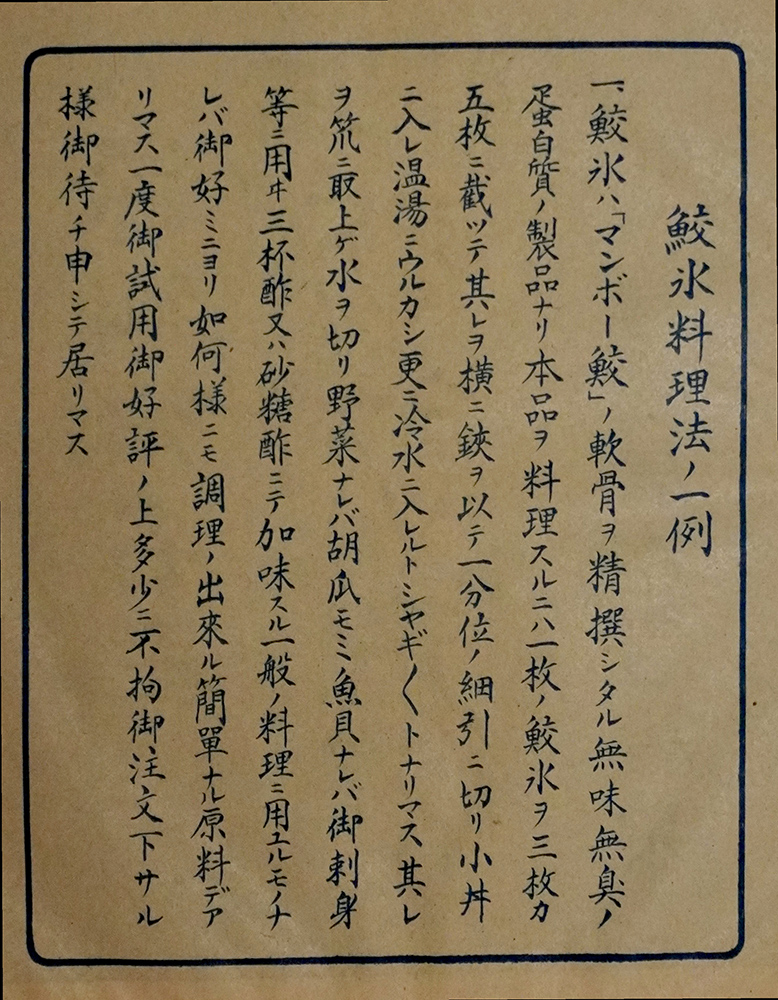 鮫氷料理法ノ一例
一、鮫氷ハ「マンボー鮫」ノ軟骨ヲ精撰シタル無味無臭ノ
蛋白質ノ製品ナリ本品ヲ料理スルニハ一枚ノ鮫氷ヲ三枚カ
五枚ニ截ツテ其レヲ横ニ鋏ヲ以テ一分位ノ細引ニ切リ小丼
ニ入レ温湯ニウルカシ更ニ冷水ニ入レルトシヤギ〱トナリマス其レ
ヲ笊ニ取上ゲ水ヲ切リ野菜ナレバ胡瓜モミ魚貝ナレバ御刺身
等ニ用ヰ三杯酢又ハ砂糖酢ニテ加味スル一般ノ料理ニ用ユルモノナ
レバ御好ミニヨリ如何様ニモ調理ノ出來ル簡單ナル原料デア
リマス一度御試用御好評ノ上多少ニ不拘御注文下サル
様御待チ申シテ居リマス